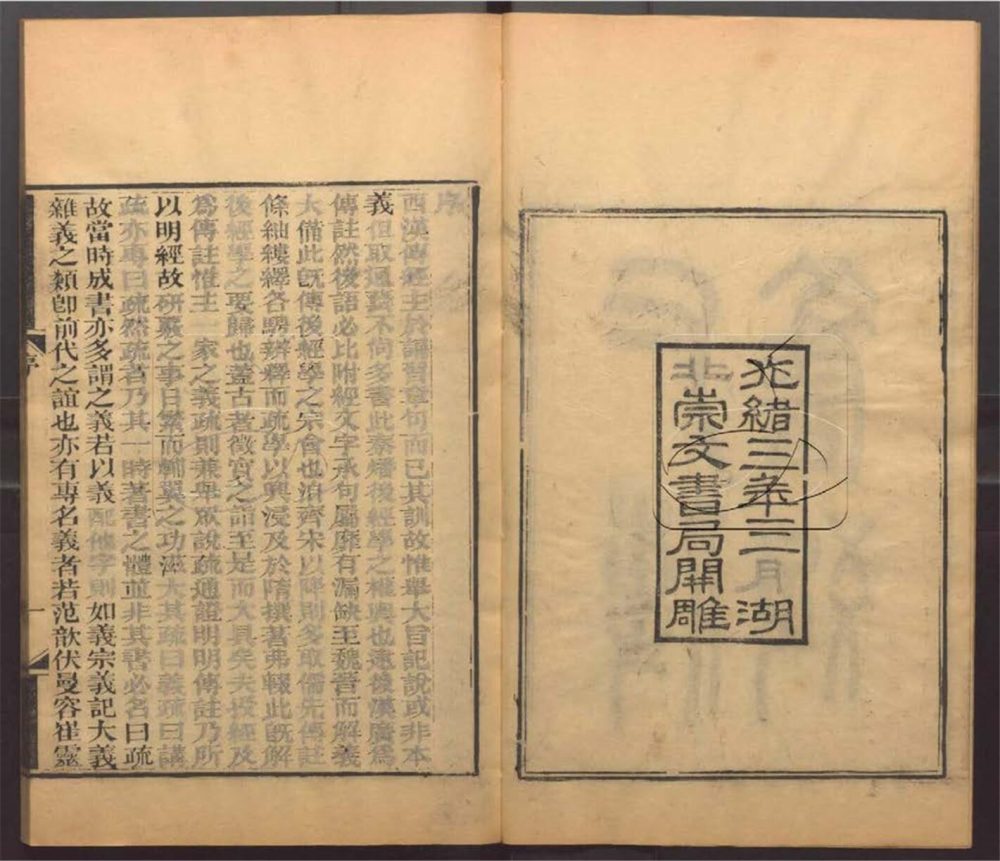 光緒三年三月湖
北崇文書局開雕
序
西漢傳經主於誦習章句而已其訓故惟舉大旨記說或非本
義但取通藝不尚多書此秦燔後經學之權輿也逮後漢廣為
傳註然後語必比附經文字承句屬靡有漏缺至魏晉而解義
大備此旣傳後經學之宗會也洎齊宋以降則多取儒先傳註
條紬縷繹各騁辨釋而疏學以興浸及於隋撰著弗輟此旣解
後經學之要歸也蓋古者徵實之詣至是而大具矣夫授經及
為傳註惟主一家之義疏則兼舉眾說疏通證明明傳註乃所
以明經故研覈之事日繁而輔翼之功滋大其疏曰義疏曰講
疏亦專曰疏然疏者乃其一時著書之體並非其書必名曰疏
故當時成書亦多謂之義若以義配他字則如義宗義記大義
雜義之類卽前代之誼也亦有專名義者若范歆伏曼容崔靈
序
一